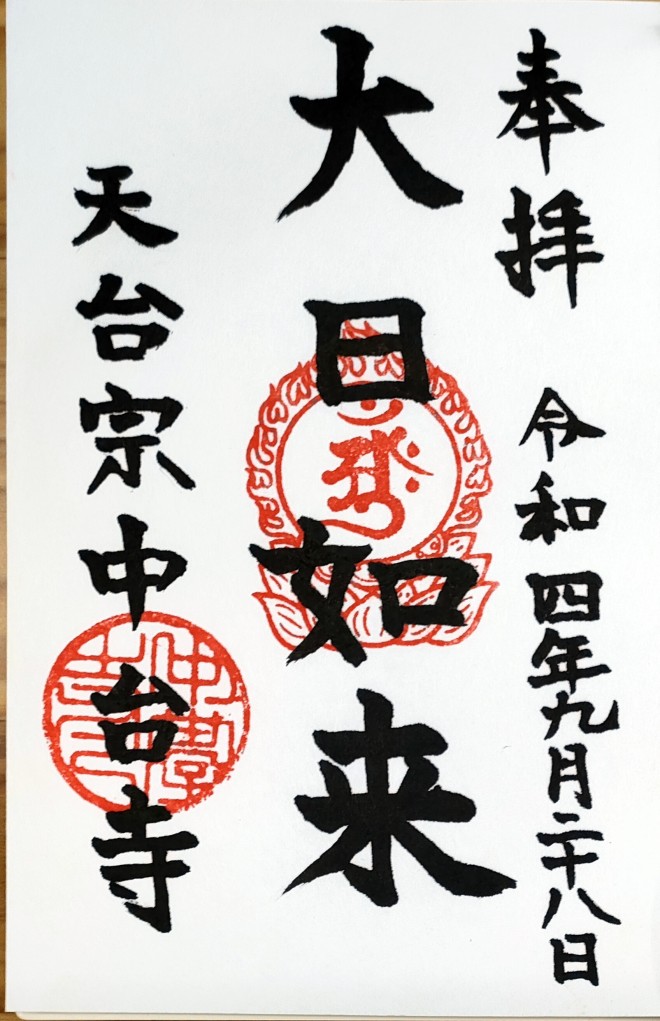 奉拝 令和四年九月二十八日
大日如来
天台宗中台寺